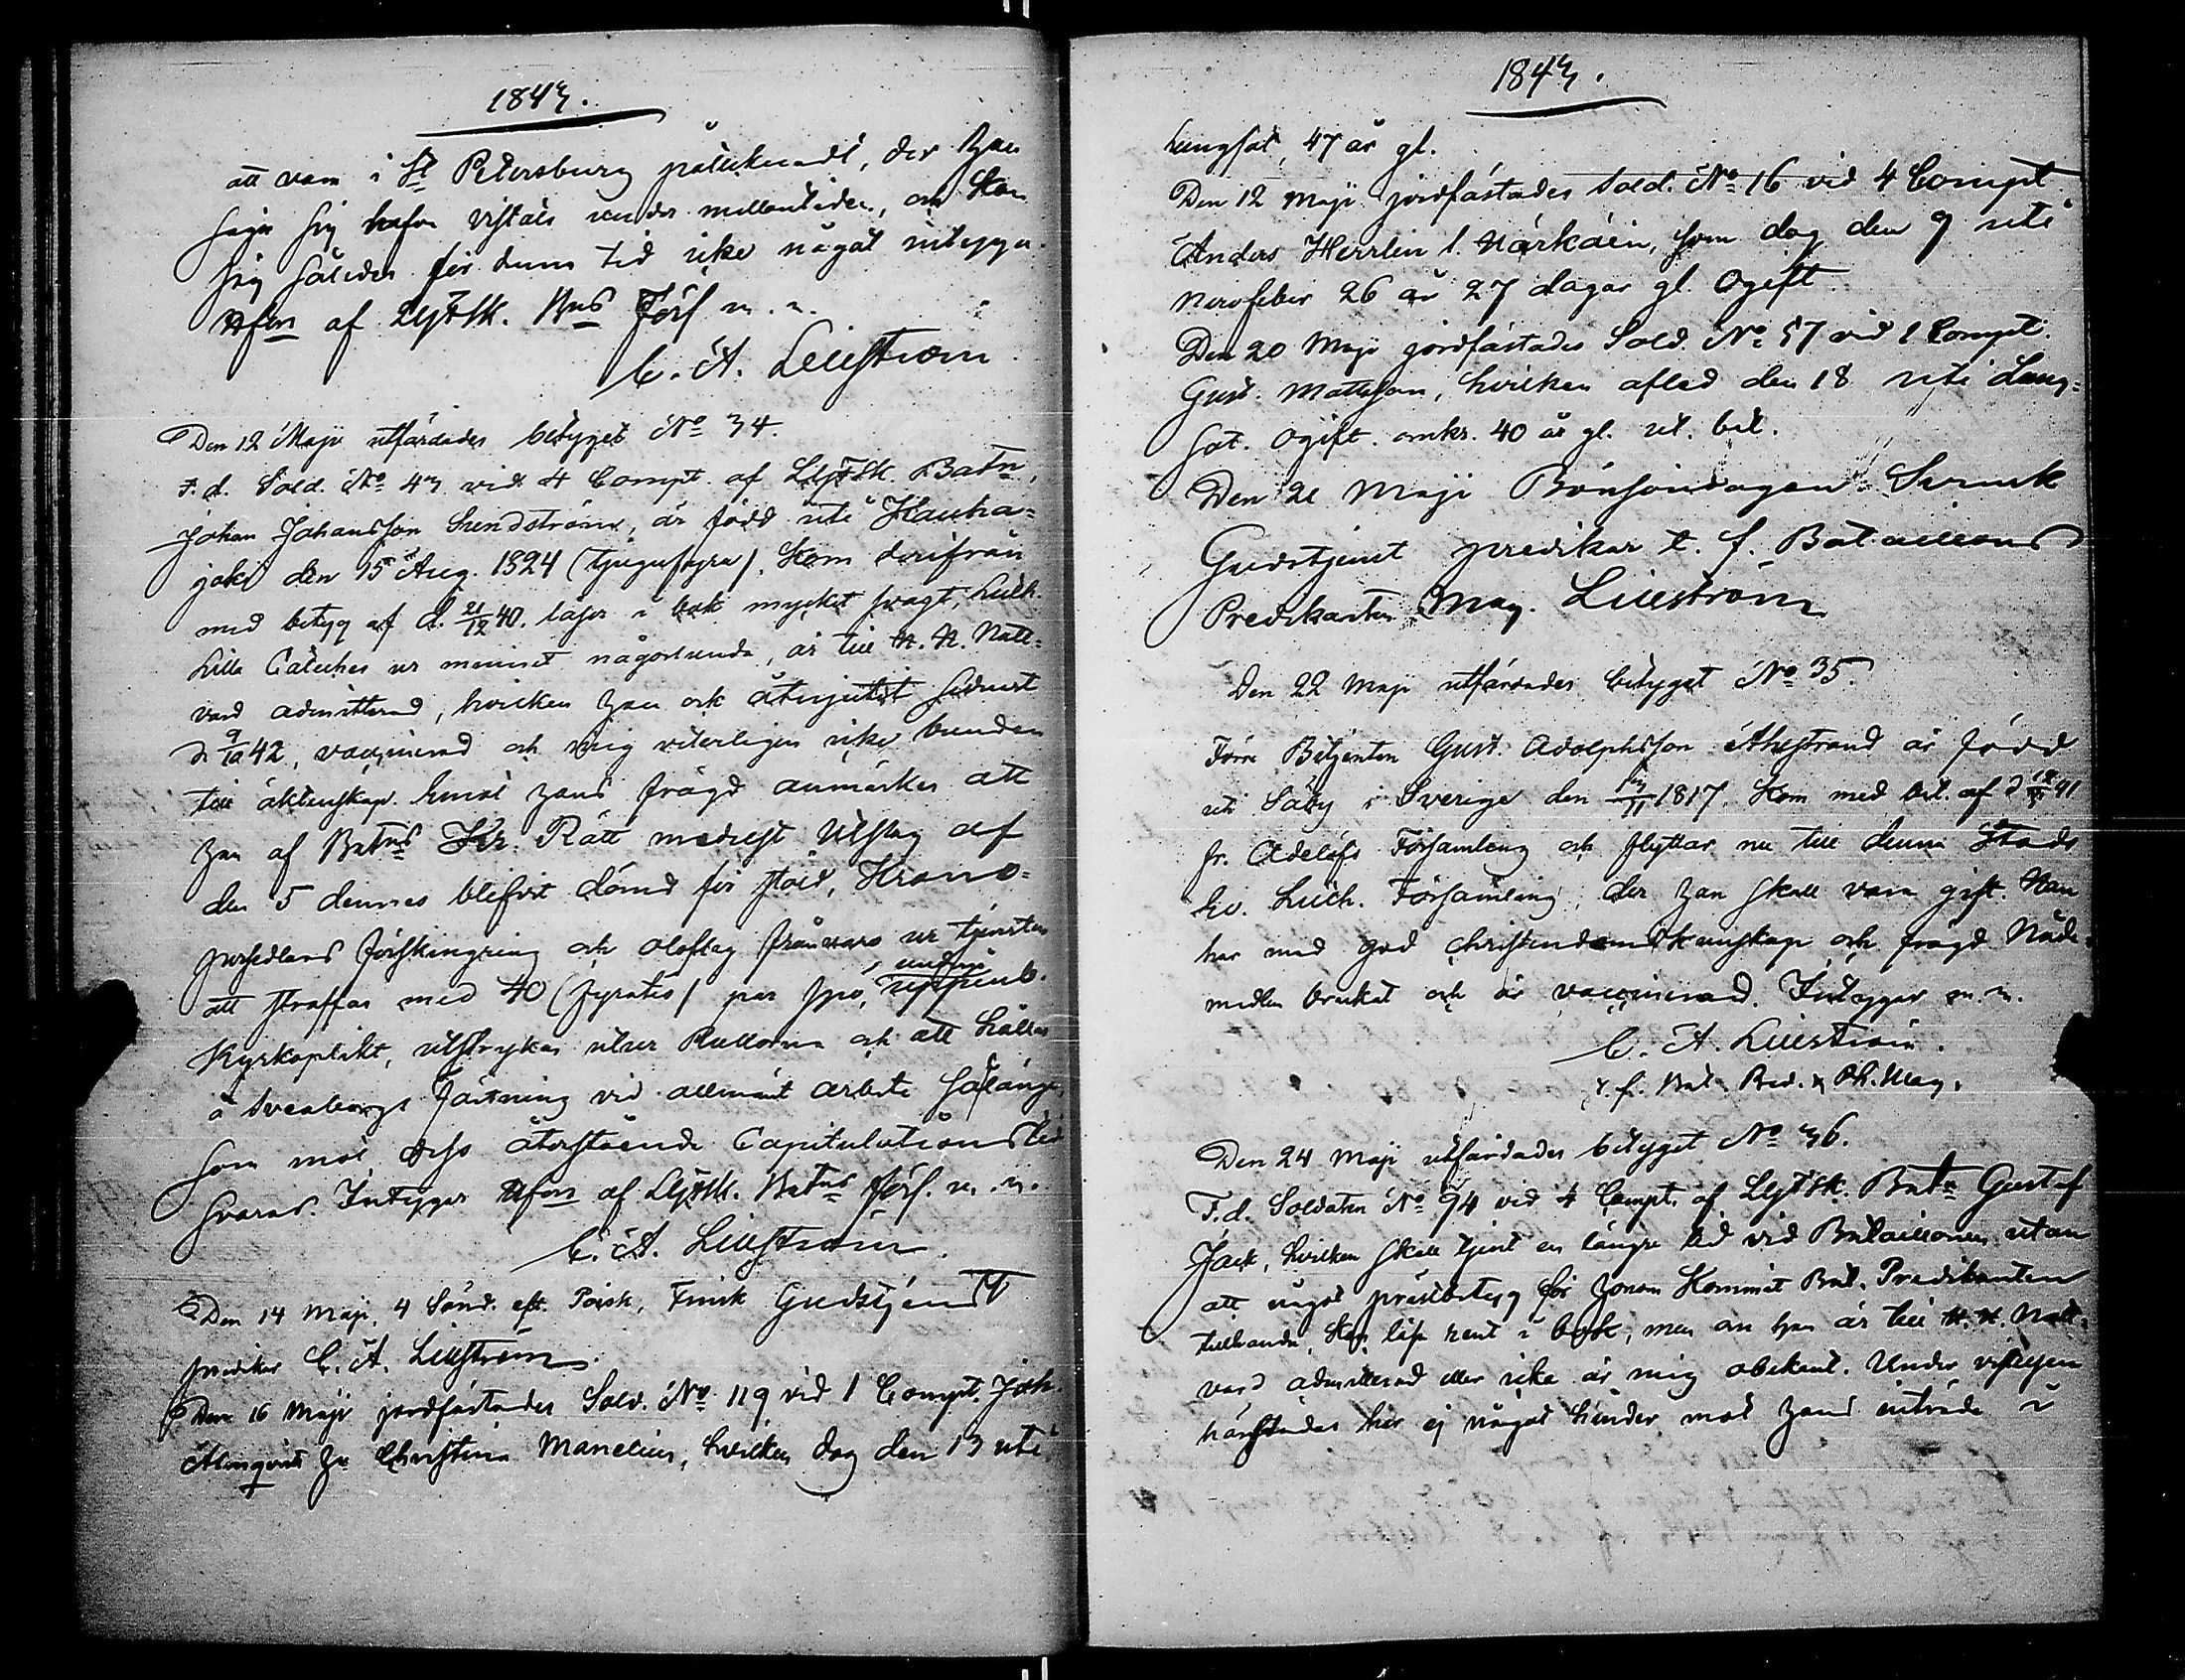 1843.
att vara i St Petersburg påteknadt, der han
säger sig hafva vistats under mellantiden, och kan
jag således för denna tid icke något intyga.
Hfors af LifFSk. Bns Förs m.m.
C. A. Lilljeström
Den 12 Maji utfärdades betyget No 34.
F. d. Sold. No 43 vid 4 Compt. af LifFSk. Batn,
Johan Johansson Lendström, är född uti Kauha-
joki den 15 Aug. 1824 (tjugufyra). Kom derifrån
med betyg af d. 21/12 40. läser i bok mycket svagt, Luth.
Lilla Cateches ur minnet någorlunda, är till H. H. Natt-
vard admitterad, hvilken han ock åtnjutit sednast
d. 9/10 42, vaccinerad och mig veterligen icke bunden
till äktenskap. Emot hans frägd anmärkes att
han af Batns Kr. Rätt medelst Utslag af
den 5 dennes blifvit dömd för stöld, Krono-
persedlars förskingring och oloflig frånvaro ur tjensten
att straffas med 40 (fyratio) par spö, undergå uppenb.
Kyrkoplikt, utstrykas utur Rullorna och att hållas
å Sveaborgs fästning vid allmänt arbete så länge,
som mot dess återstående Capitulations tid
svarar. Intygar Hfors af LifFSk. Batns förs. m. m.
C. A. Lilljeström.
Den 14 Maji, 4 Sönd. eft. Påsk, Finsk Gudstjenst
predikar C. A. Lilljeström.
Den 16 Maji jordfästades Sold. No 119 vid 1 Compt. Joh.
Almqvists h. Christina Manelius, hvilken dog den 13 uti
1843.
lungsot, 47 år gl.
Den 12 Maji jordfästades Sold. No 16 vid 4 Compt
Anders Herrlin l. Närkäin, som dog den 9 uti
nervfeber 26 år 27 dagar gl. Ogift
Den 20 Maji jordfästades Sold. No 57 vid 1 Compt.
Gust. Mattsson, hvilken afled den 18 uti Lung-
sot. Ogift. omkr. 40 år gl. ut. bet.
Den 21 Maji Bönsöndagen Svensk
Gudstjenst predikar t. f. Bataillons
Predikanten Mag. Lilljeström
Den 22 Maji utfärdades betyget No 35.
Förre Betjenten Gust. Adolphsson Ahlstrand är född
uti Säby i Sverige den 13/11 1817. Kom med bet. af d. 41
fr. Adelöfs Församling och flyttar nu till denna Stads
Ev. Luth. Församling, der han skall vara gift. Han
har med god christendomskunskap och frägd Nåde-
medlen brukat och är vaccinerad. Intygar m.m.
C. A. Lilljeström.
t. f. Bat. Pred. Ph. Mag.
Den 24 Maji utfärdades betyget No 36.
F. d. Soldaten No 94 vid 4 Compt. af LifFSk. Batn Gustaf
Jack, hvilken skall tjent en längre tid vid Bataillonen utan
att något prestbetyg för honom kommit Bat. Predikanten
tillhanda, kan läsa rent i bok, men om han är till H. H. Natt-
vard admitterad eller icke är mig obekant. Under vistelsen
härstädes har ej något hinder mot hans inträde i